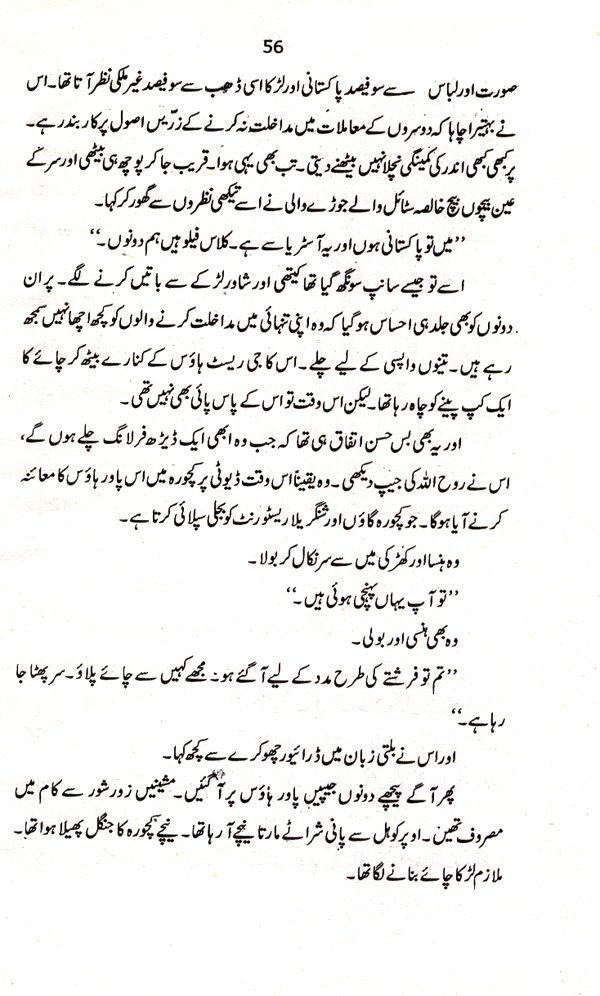 56
صورت اور لباس سے سو فیصد پاکستانی اور لڑکا اسی ڈھب سے سو فیصد غیر ملکی نظر آتا تھا۔ اس
نے بہتیرا چاہا کہ دوسروں کے معاملات میں مداخلت نہ کرنے کے زرّیں اصول پر کاربند رہے۔
پر کبھی کبھی اندر کی کمینگی نچلا نہیں بیٹھنے دیتی۔ تب بھی یہی ہوا۔ قریب جا کر پوچھ ہی بیٹھی اور سر کے
عین بیچوں بیچ خالصہ سٹائل والے جوڑے والی نے اسے تیکھی نظروں سے گھور کر کہا۔
’’میں تو پاکستانی ہوں اور یہ آسٹریا سے ہے۔ کلاس فیلو ہیں ہم دونوں۔‘‘
اسے تو جیسے سانپ سونگھ گیا تھا کیتھی اور شاور لڑکے سے باتیں کرنے لگے۔ پر ان
دونوں کو بھی جلد ہی احساس ہو گیا کہ وہ اپنی تنہائی میں مداخلت کرنے والوں کو کچھ اچھا نہیں سمجھ
رہے ہیں۔ تینوں واپسی کے لیے چلے۔ اس کا جی ریسٹ ہاؤس کے کنارے بیٹھ کر چائے کا
ایک کپ پینے کو چاہ رہا تھا۔ لیکن اس وقت تو اس کے پاس پائی بھی نہیں تھی۔
اور یہ بھی بس حسن اتفاق ہی تھا کہ جب وہ ابھی ایک ڈیڑھ فرلانگ چلے ہوں گے،
اس نے روح اللہ کی جیپ دیکھی۔ وہ یقیناً اس وقت ڈیوٹی پر کچورہ میں اس پاور ہاؤس کا معائنہ
کرنے آیا ہوگا۔ جو کچورہ گاؤں اور شنگریلا ریسٹورنٹ کو بجلی سپلائی کرتا ہے۔
وہ ہنسا اور کھڑکی میں سے سر نکال کر بولا۔
’’تو آپ یہاں پہنچی ہوئی ہیں۔‘‘
وہ بھی ہنسی اور بولی۔
’’تم تو فرشتے کی طرح مدد کے لیے آ گئے ہو۔ مجھے کہیں سے چائے پلاؤ۔ سر پھٹا جا
رہا ہے۔‘‘
اور اس نے بلتی زبان میں ڈرائیور چھوکرے سے کچھ کہا۔
پھر آگے پیچھے دونوں جیپیں پاور ہاؤس پر آ گئیں۔ مشینیں زور شور سے کام میں
مصروف تھیں۔ اوپر کوہل سے پانی شراٹے مارتا نیچے آ رہا تھا۔ نیچے کچورہ کا جنگل پھیلا ہوا تھا۔
ملازم لڑکا چائے بنانے لگا تھا۔